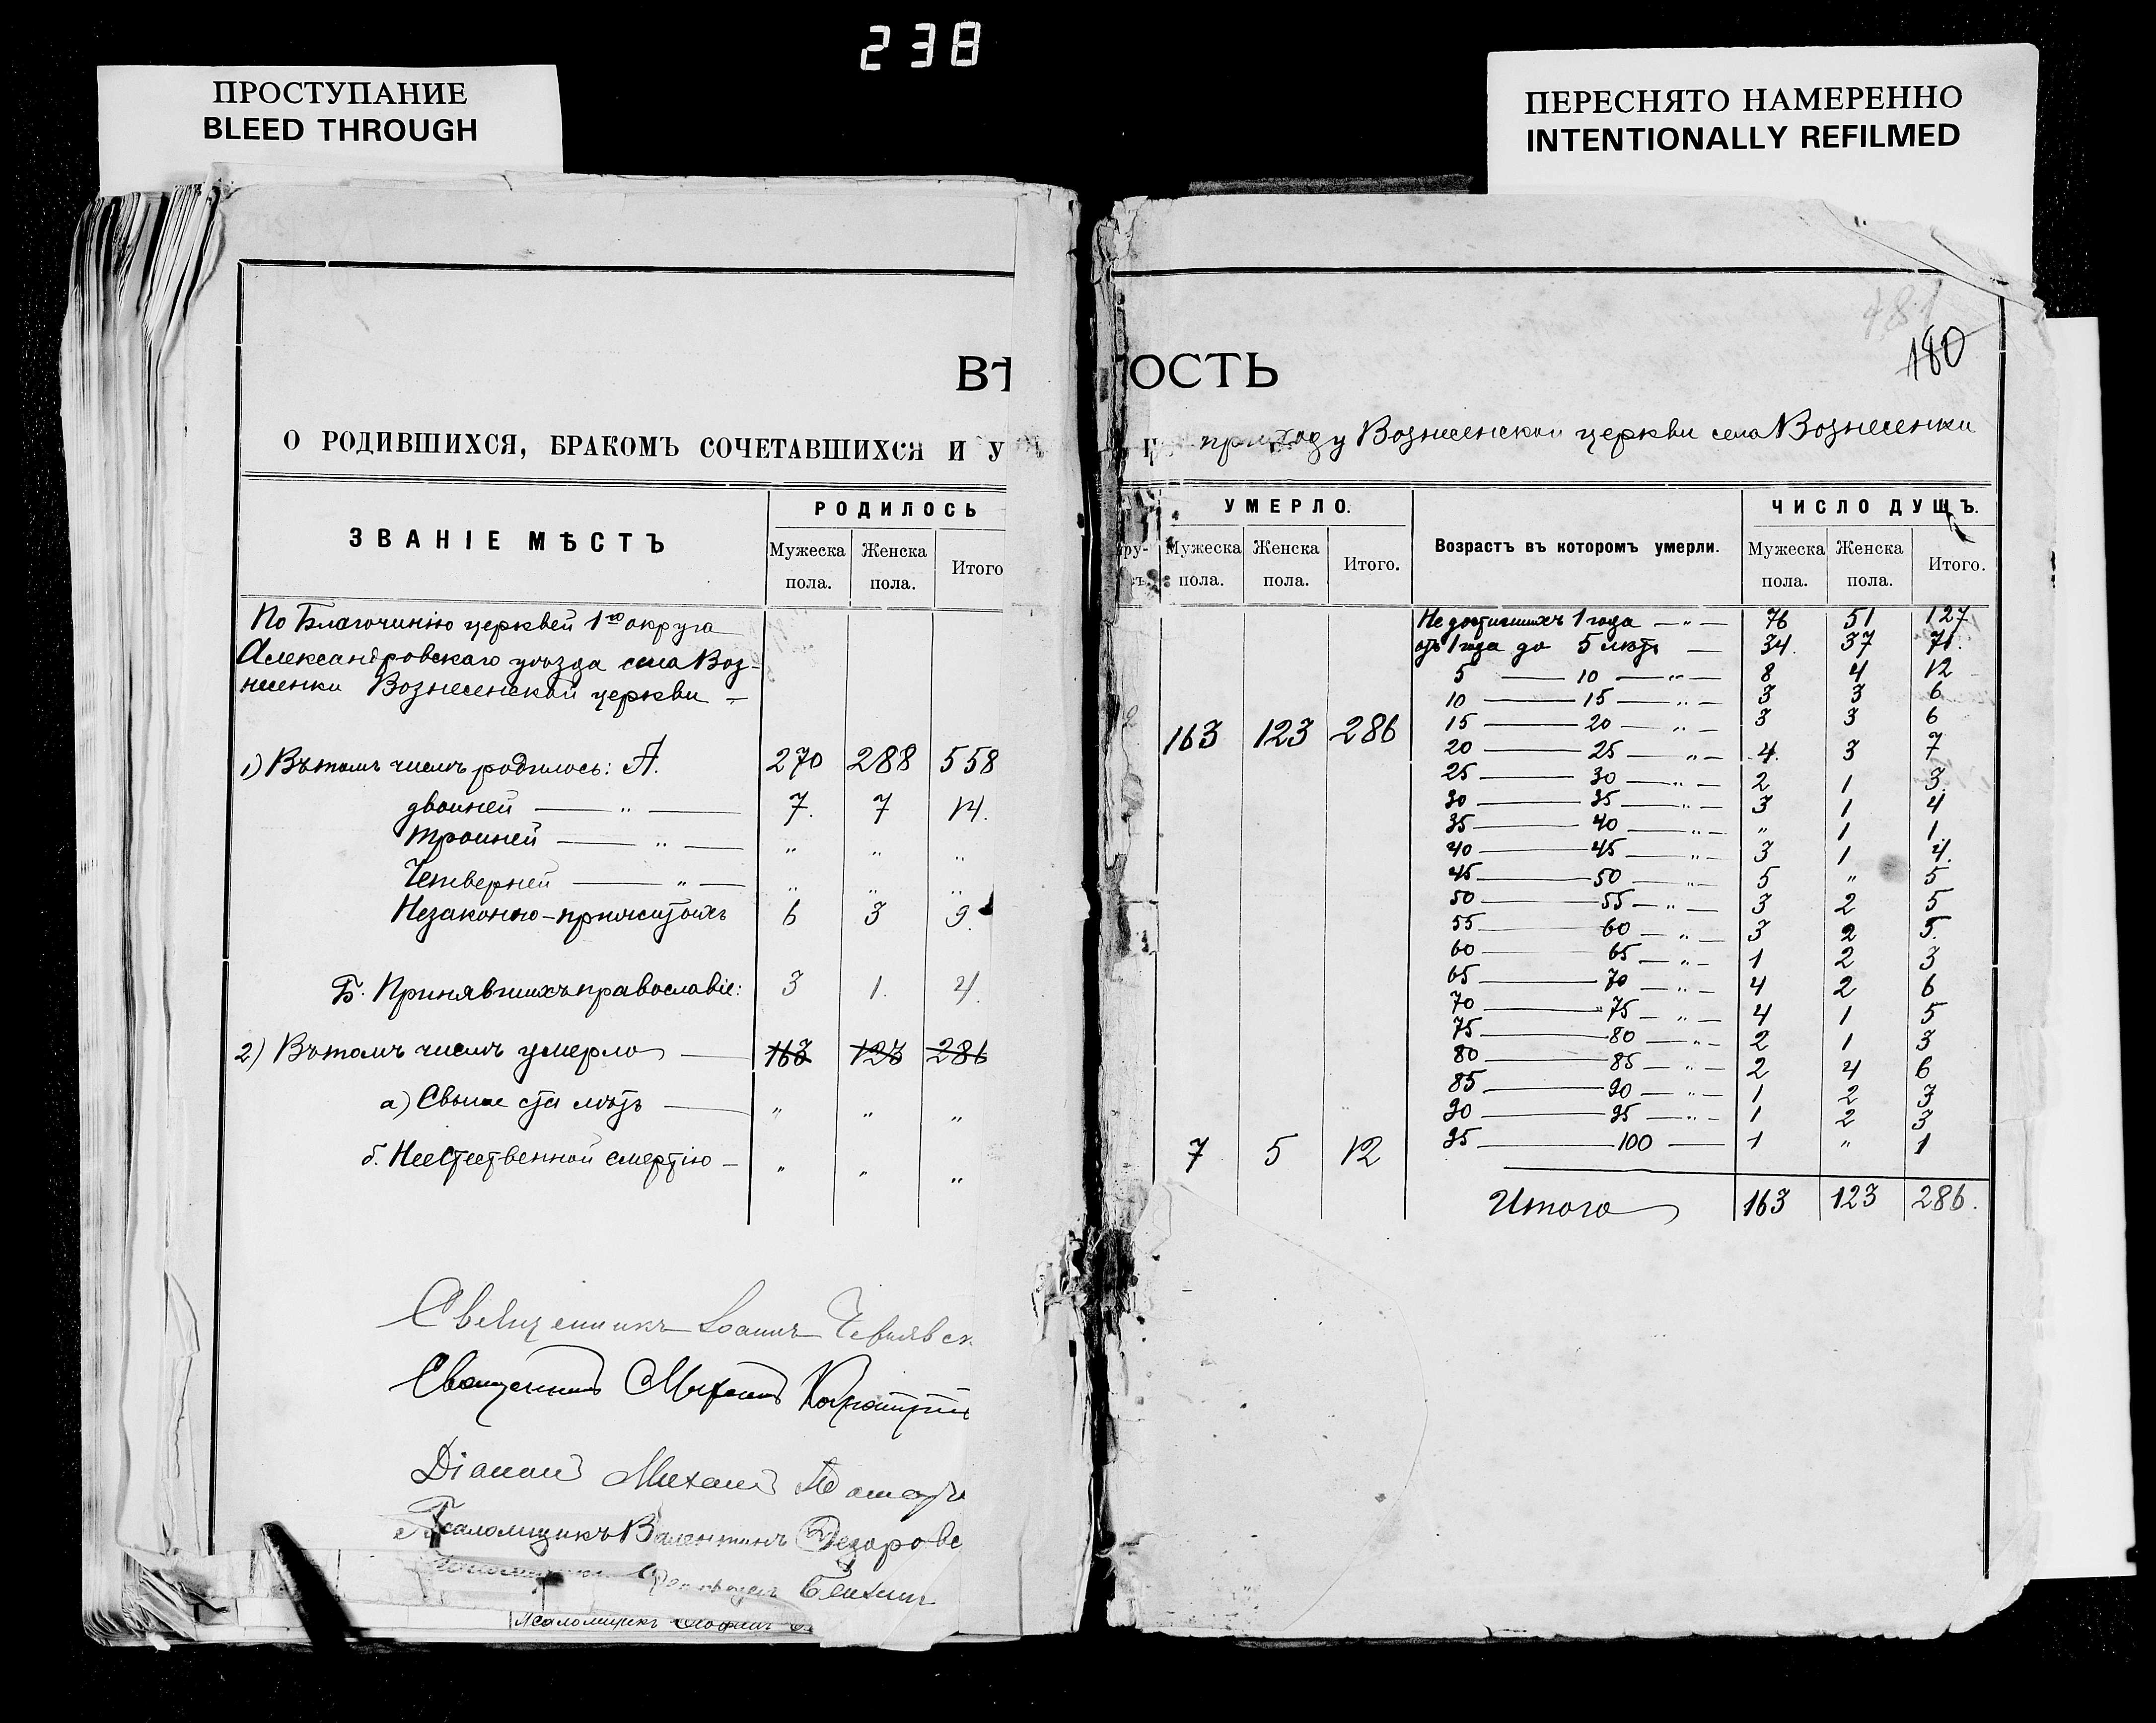 238
ПРОСТУПАНИЕ
BLEED THROUGH
ПЕРЕСНЯТО НАМЕРЕННО
INTENTIONALLY REFILMED
481
180
ВѢ ОСТЬ
О РОДИВШИХСЯ, БРАКОМЪ СОЧЕТАВШИХСЯ И У
приходу Вознесенской церкви села Вознесенки
ЗВАНІЕ МѢСТЪ
РОДИЛОСЬ
Мужеска пола. Женска пола. Итого
По Благочинію церквей 1го округа
Александровскаго уѣзда села Воз-
несенки Вознесенской церкви —
1) Въ томъ числѣ родилось: А. 270 288 558
двойней — „ — 7. 7 14.
тройней — „ — „ „ „
Четверней — „ — „ „ „
Незаконно-прижитыхъ 6 3 9.
Б. Принявшихъ православіе: 3 1. 4.
2) Въ томъ числѣ умерло — 163 123 286
а) Свыше ста лѣтъ — „ „ „
б. Неестественной смертію — „ „ „
Священникъ Іоаннъ
Священникъ Михаилъ
Діаконъ Михаилъ
Псаломщикъ Валентинъ
Псаломщикъ
УМЕРЛО.
Мужеска пола. Женска пола. Итого.
163 123 286
7 5 12
Возрастъ въ которомъ умерли.
ЧИСЛО ДУШЪ.
Мужеска пола. Женска пола. Итого.
Не достигшихъ 1 года — „ — 76 51 127
отъ 1 года до 5 лѣтъ — 34. 37 71.
5 — 10 — „ — 8 4 12
10 — 15 — „ — 3 3 6
15 — 20 — „ — 3 3 6
20 — 25 — „ — 4. 3 7
25 — 30 — „ — 2 1 3
30 — 35 — „ — 3 1 4
35 — 40 — „ — „ 1 1.
40 — 45 — „ — 3 1 4.
45 — 50 — „ — 5 „ 5
50 — 55 — „ — 3 2 5
55 — 60 — „ — 3 2 5.
60 — 65 — „ — 1 2 3
65 — 70 — „ — 4 2 6
70 — 75 — „ — 4 1 5
75 — 80 — „ — 2 1 3
80 — 85 — „ — 2 4 6
85 — 90 — „ — 1 2 3
90 — 95 — „ — 1 2 3
95 — 100 — 1 „ 1
Итого 163 123 286.